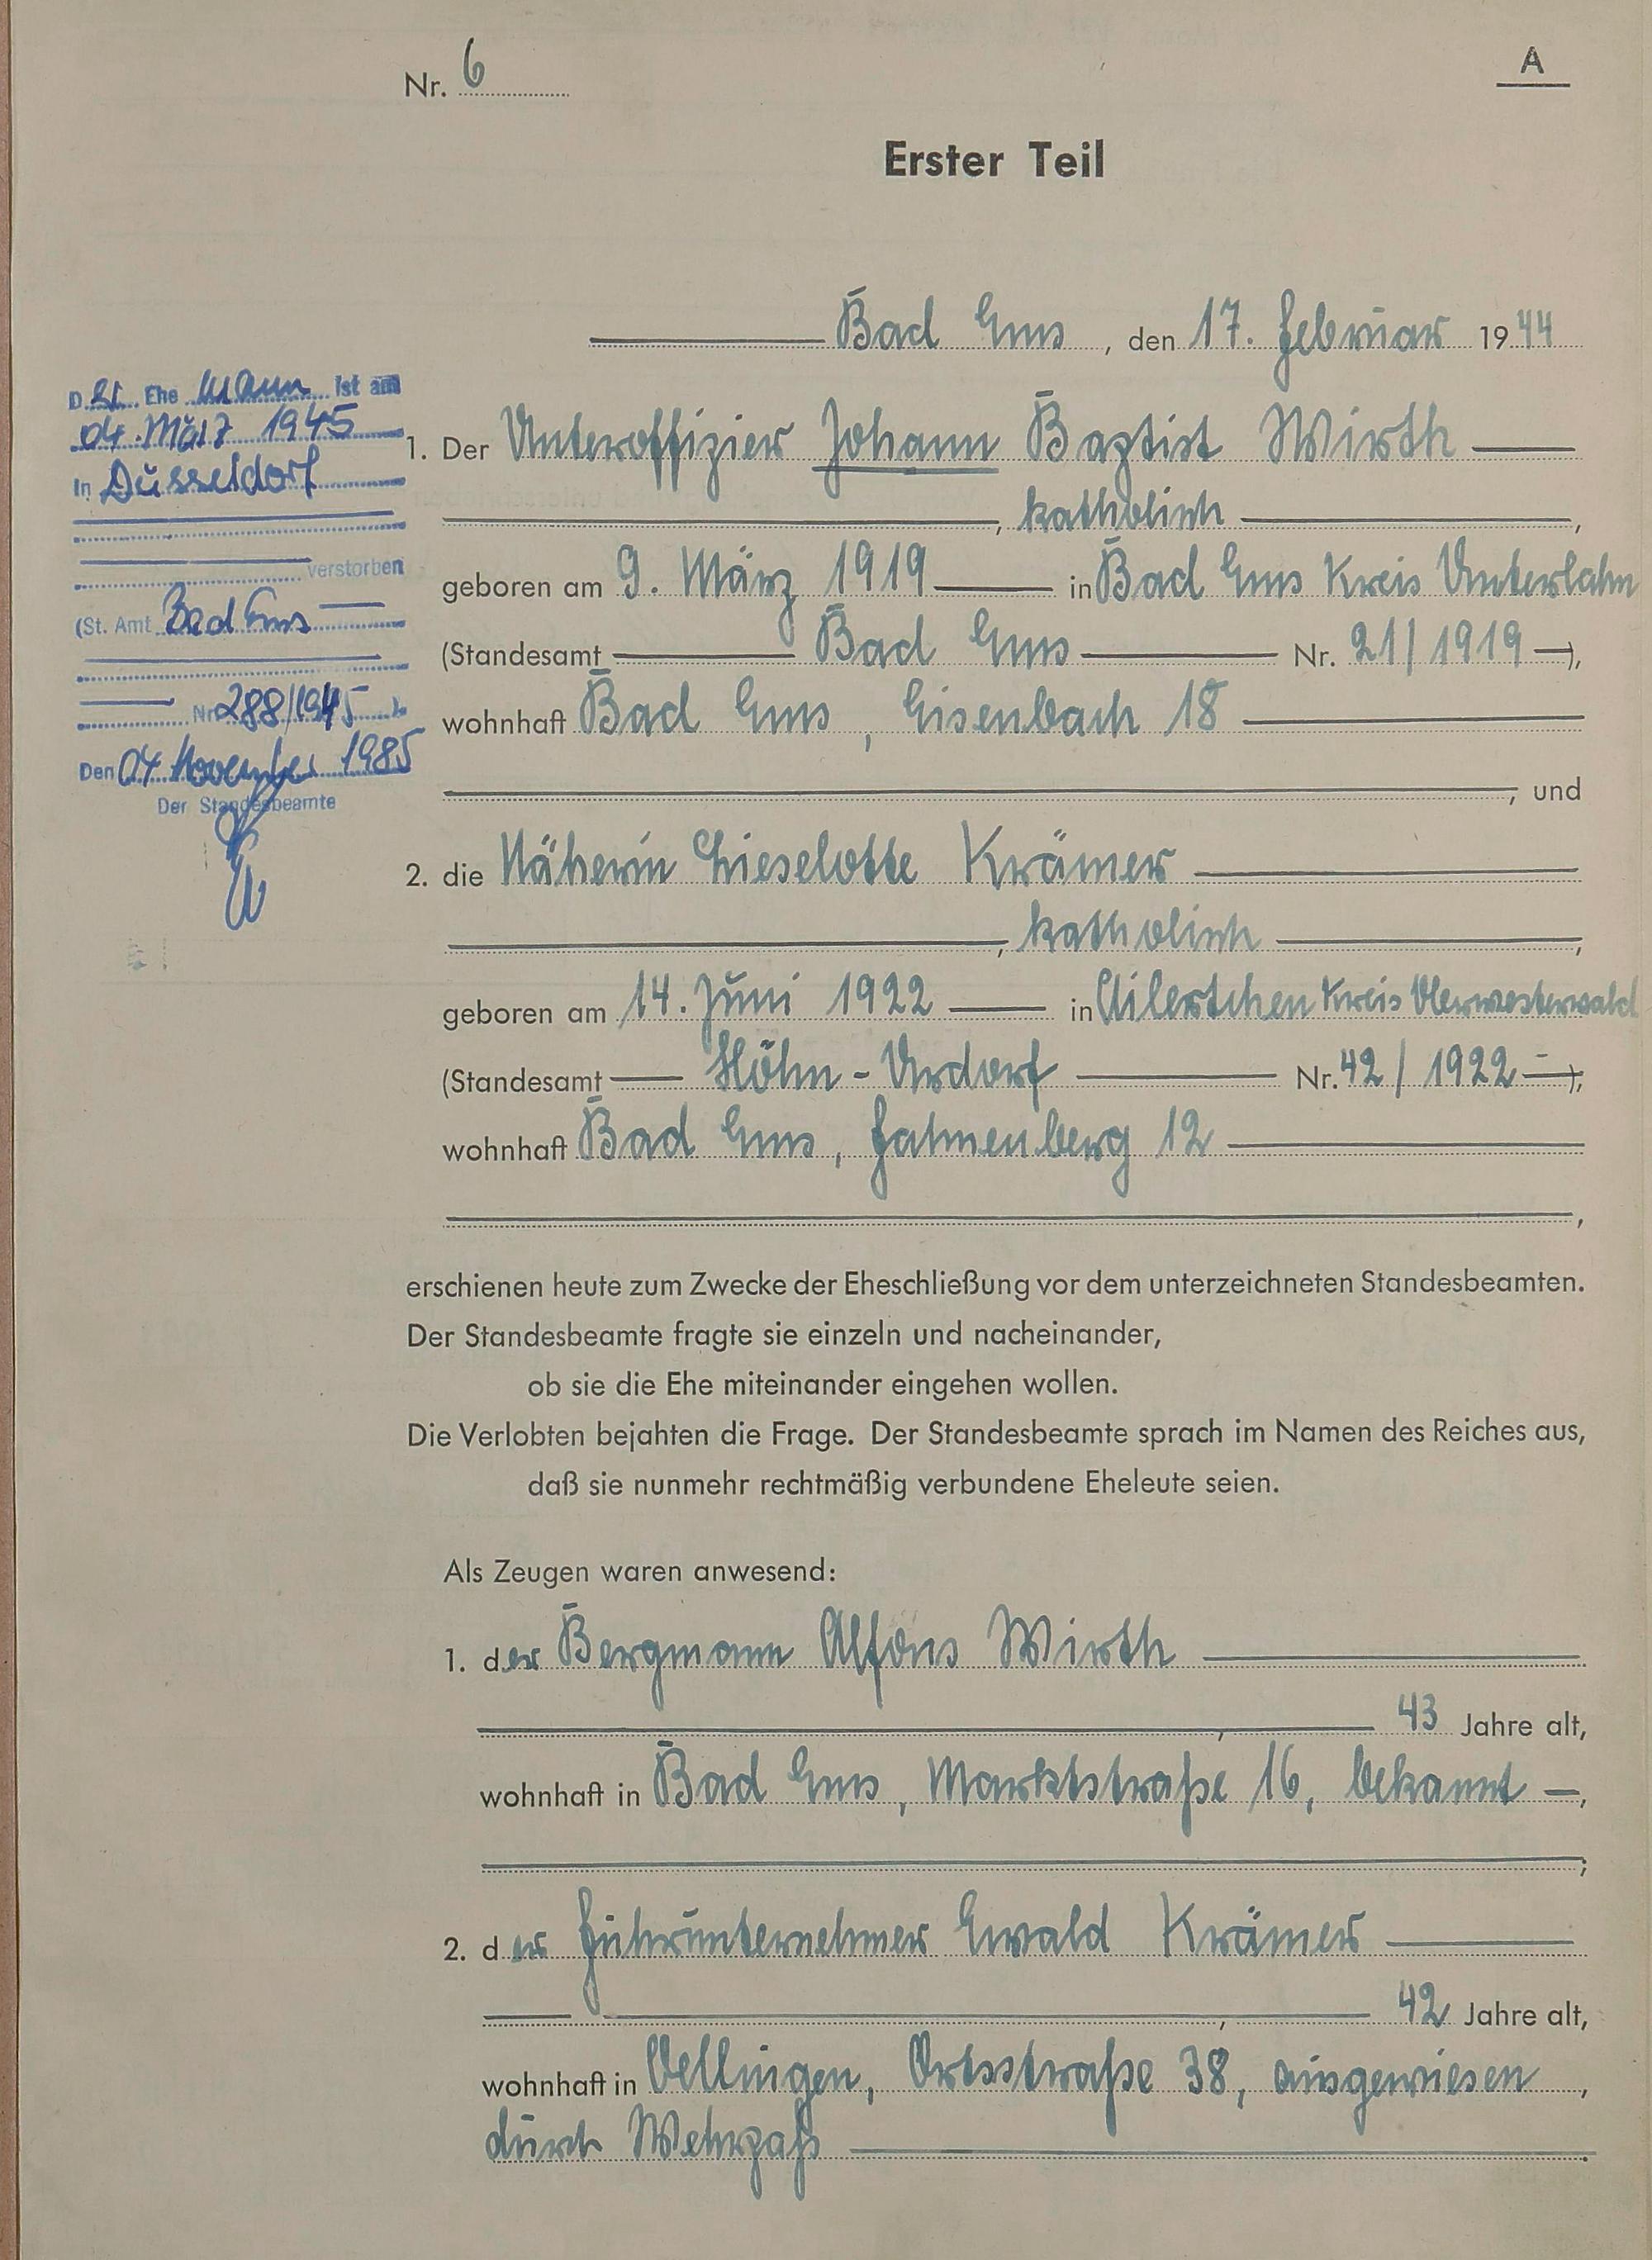 Nr. 6
A
Erster Teil
Bad Ems, den 17. Februar 1944
Der Ehe Mann ist am
04. März 1945
in Düsseldorf
verstorben
(St. Amt Bad Ems
Nr 288/1945)
Den 04 November 1985
Der Standesbeamte
1. Der Unteroffizier Johann Baptist Wirth
, katholisch ,
geboren am 9. März 1919 in Bad Ems Kreis Unterlahn
(Standesamt Bad Ems Nr. 21/1919 ),
wohnhaft Bad Ems, Eisenbach 18
, und
2. die Näherin Lieselotte Krämer
, katholisch ,
geboren am 14. Juni 1922 in Ailertchen Kreis Oberwesterwald
(Standesamt Höhn-Urdorf Nr. 42/1922 ),
wohnhaft Bad Ems, Fahnenberg 12
,
erschienen heute zum Zwecke der Eheschließung vor dem unterzeichneten Standesbeamten.
Der Standesbeamte fragte sie einzeln und nacheinander,
ob sie die Ehe miteinander eingehen wollen.
Die Verlobten bejahten die Frage. Der Standesbeamte sprach im Namen des Reiches aus,
daß sie nunmehr rechtmäßig verbundene Eheleute seien.
Als Zeugen waren anwesend:
1. der Bergmann Alfons Wirth
, 43 Jahre alt,
wohnhaft in Bad Ems, Marktstraße 16, bekannt ,
;
2. der Fuhrunternehmer Ewald Krämer
, 42 Jahre alt,
wohnhaft in Oellingen, Ortsstraße 38, ausgewiesen ,
durch Wehrpaß .